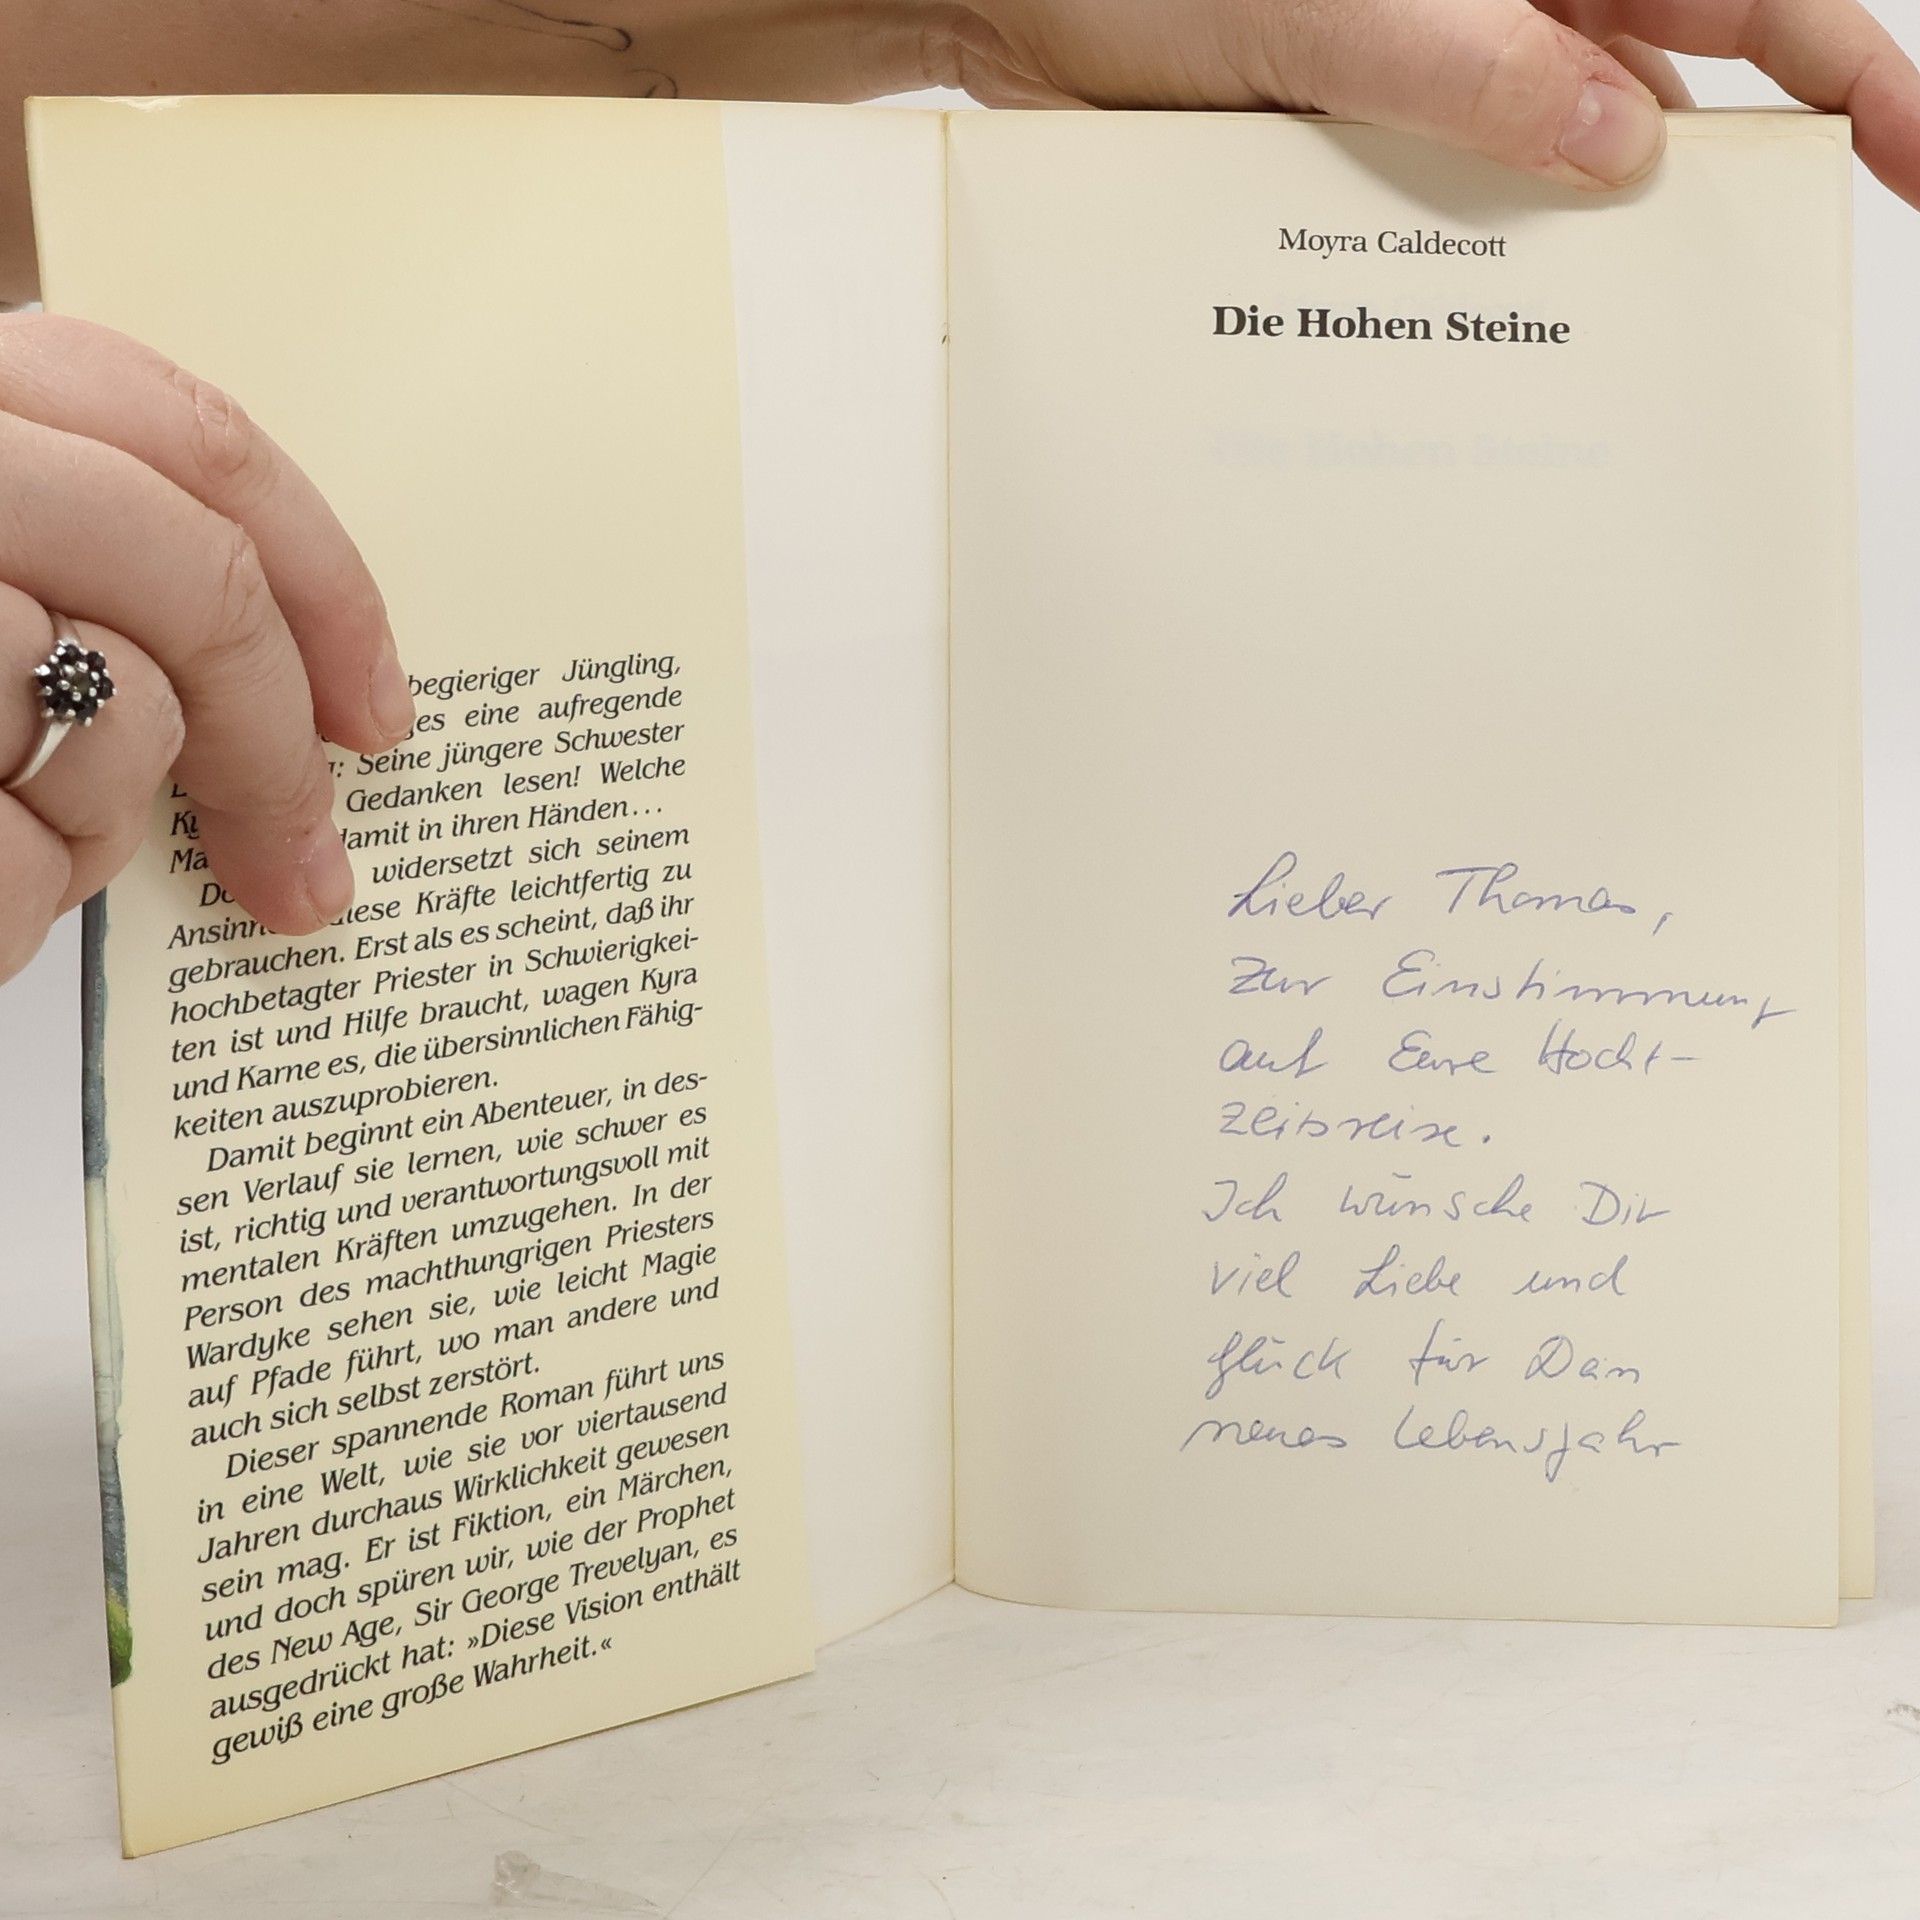 begieriger Jüngling,
es eine aufregende
: Seine jüngere Schwester
Gedanken lesen! Welche
damit in ihren Händen…
widersetzt sich seinem
diese Kräfte leichtfertig zu
gebrauchen. Erst als es scheint, daß ihr
hochbetagter Priester in Schwierigkei-
ten ist und Hilfe braucht, wagen Kyra
und Karne es, die übersinnlichen Fähig-
keiten auszuprobieren.
Damit beginnt ein Abenteuer, in des-
sen Verlauf sie lernen, wie schwer es
ist, richtig und verantwortungsvoll mit
mentalen Kräften umzugehen. In der
Person des machthungrigen Priesters
Wardyke sehen sie, wie leicht Magie
auf Pfade führt, wo man andere und
auch sich selbst zerstört.
Dieser spannende Roman führt uns
in eine Welt, wie sie vor viertausend
Jahren durchaus Wirklichkeit gewesen
sein mag. Er ist Fiktion, ein Märchen,
und doch spüren wir, wie der Prophet
des New Age, Sir George Trevelyan, es
ausgedrückt hat: »Diese Vision enthält
gewiß eine große Wahrheit.«
Moyra Caldecott
Die Hohen Steine
Lieber Thomas,
zur Einstimmung
auf Eure Hocht-
zeitsreise.
Ich wünsche Dir
viel Liebe und
Glück für Dein
neues Lebensjahr